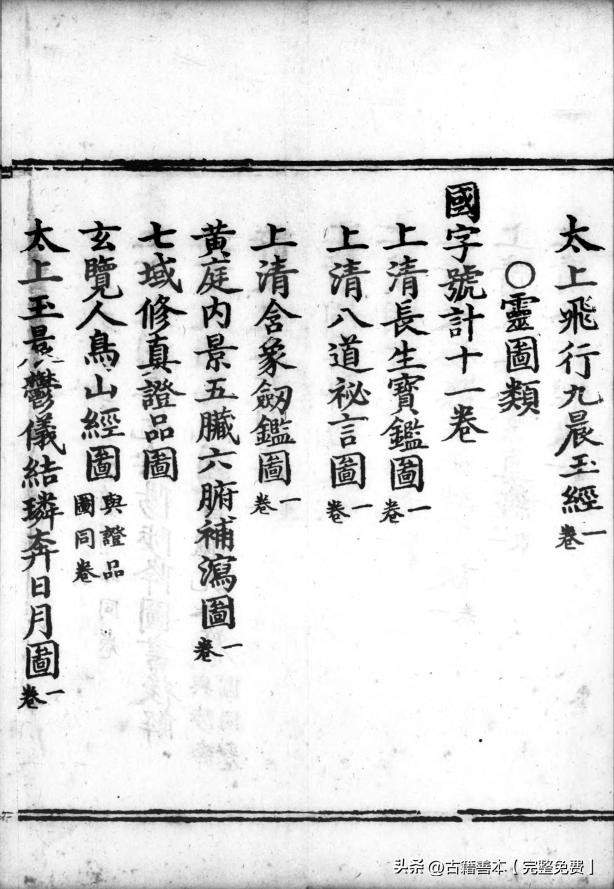 太上飛行九晨玉經一卷
○靈圖類
國字號計十一卷
上清長生寶鑑圖一卷
上清八道祕言圖一卷
上清含象劒鑑圖一卷
黃庭內景五臟六腑補瀉圖一卷
七域修真證品圖
玄覽人鳥山經圖與證品圖同卷
太上玉景鬱儀結璘奔日月圖一卷
头条 @古籍善本【完整免费】